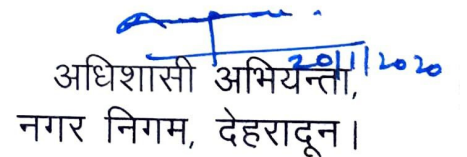 20/1/2020
अधिशासी अभियन्ता,
नगर निगम, देहरादून।